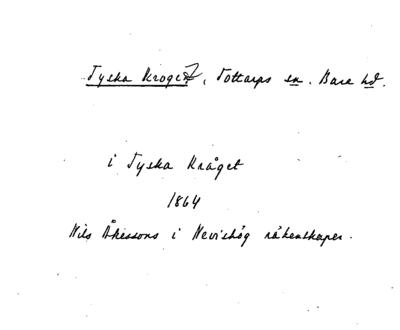 Tyska Kroget, Tottarps sn. Bara hd.
i Tyska Kråget
1864
Nils Åkessons i Nevishög räkenskaper.